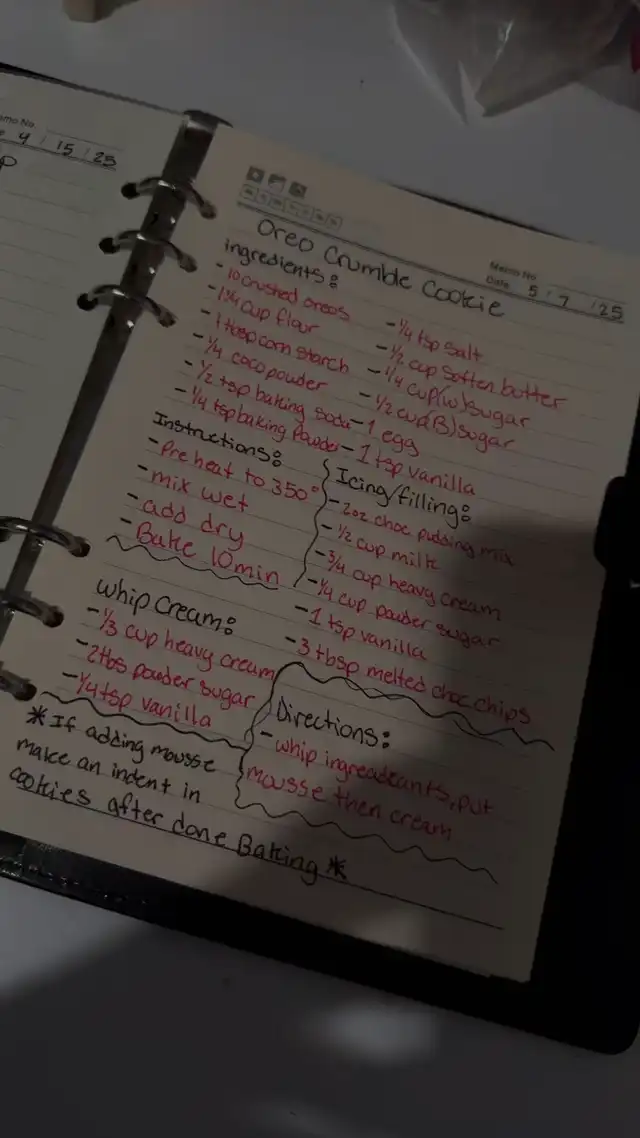 emo No
4 / 15 / 25
P
M T W T F S S
Memo No.
Date 5 / 7 / 25
Oreo Crumble Cookie
ingredients:
- 10 crushed oreos
- 1 1/4 cup flour
- 1 tbsp corn starch
- 1/4 coco powder
- 1/2 tsp baking soda
- 1/4 tsp baking powder
- 1/4 tsp salt
- 1/2 cup soften butter
- 1/4 cup (w) sugar
- 1/2 cup (B) sugar
- 1 egg
- 1 tsp vanilla
Instructions:
- Pre heat to 350°
- mix wet
- add dry
- Bake 10 min
Icing/filling:
- 2oz choc pudding mix
- 1/2 cup milk
- 3/4 cup heavy cream
- 1/4 cup powder sugar
- 1 tsp vanilla
- 3 tbsp melted choc chips
Whip Cream:
- 1/3 cup heavy cream
- 2 tbs powder sugar
- 1/4 tsp vanilla
Directions:
- whip ingreadeants, put
mousse then cream
* If adding mousse
make an indent in
cookies after done Baking *